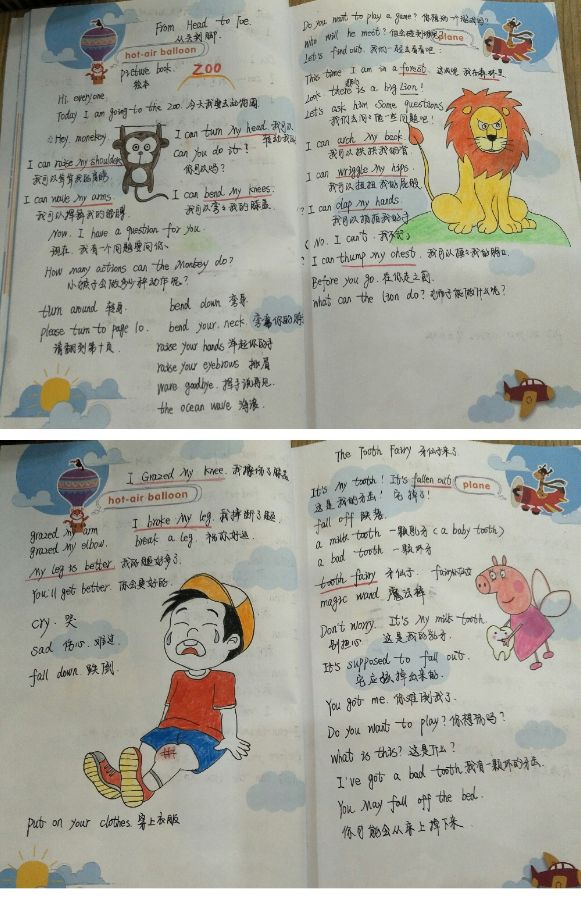 From Head to Toe.
从头到脚.
hot-air balloon
picture book. ZOO
绘本
Hi everyone.
Today I am going to the zoo. 今天我要去动物园
Hey, monkey.
I can turn my head. 我可以
Can you do it?
你可以吗?
I can raise my shoulders
I can bend my knees.
我可以弯弯我的膝盖
I can wave my arms.
Now. I have a question for you.
现在. 我有一个问题要问你.
How many actions can the Monkey do?
小猴子会做多少种动作呢?
turn around 转身
bend down 弯身
please turn to page 10.
请翻到第十页.
bend your neck.
raise your hands 举起你的手
raise your eyebrows 抬眉
wave goodbye. 挥手说再见.
the ocean wave 海浪.
Do you want to play a game?
Who will he meet?
plane
Let's find out. 我们一起去看看吧!
This time I am in a forest.
Look there is a big lion!
Let's ask him some questions
I can arch my back.
I can wriggle my hips.
我可以扭扭我的屁股
I can clap my hands.
我可以拍拍我的手
(No. I can't.
I can thump my chest.
Before you go. 在你走之前.
what can the lion do?
I Grazed my knee.
hot-air balloon
I broke my leg.
grazed my arm
grazed my elbow.
break a leg. 祝你好运.
My leg is better
You'll get better. 你会更好的.
cry. 哭
sad 伤心. 难过
fall down. 跌倒.
put on your clothes. 穿上衣服
The Tooth Fairy 牙仙子来了.
It's my tooth! It's fallen out!
plane
这是我的牙齿! 它掉了!
fall off
a milk tooth 一颗乳牙 (a baby tooth)
a bad tooth 一颗坏牙
tooth fairy 牙仙子.
magic wand 魔法棒
Don't worry. It's my milk tooth.
别担心 这是我的乳牙
It's supposed to fall out.
它应该掉出来的.
You got me. 你难倒我了.
Do you want to play? 你想玩吗?
what is this? 这是什么?
I've got a bad tooth 我有一颗坏的牙齿.
You may fall off the bed.
你可能会从床上掉下来.